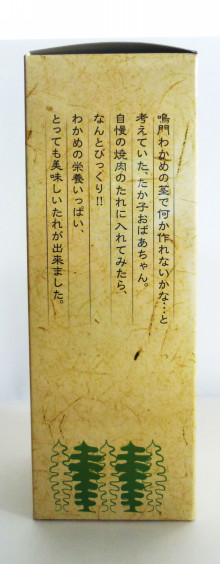 鳴門わかめの茎で何か作れないかな…と
考えていた、たか子おばあちゃん。
自慢の焼肉のたれに入れてみたら、
なんとびっくり!!
わかめの栄養いっぱい、
とっても美味しいたれが出来ました。